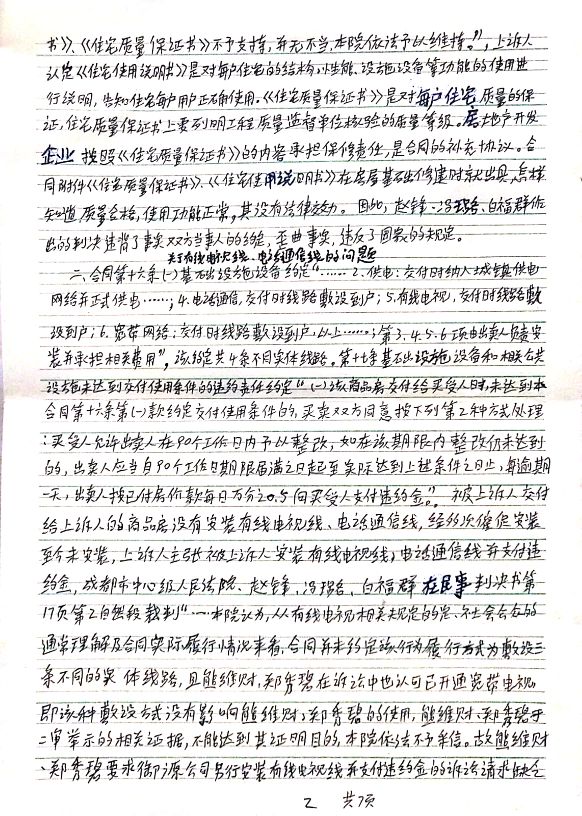 书》、《住宅质量保证书》不予支持,并无不当,本院依法予以维持。”,上诉人
认定《住宅使用说明书》是对每户住宅的结构、性能、设施设备等功能的使用进
行说明,告知住宅每户用户正确使用。《住宅质量保证书》是对每户住宅质量的保
证,住宅质量保证书上要列明工程质量监督单位核验的质量等级。房地产开发
企业按照《住宅质量保证书》的内容承担保修责任,是合同的补充协议。合
同附件《住宅质量保证书》、《住宅使用说明书》在房屋基础修建时就出现,怎样
知道质量合格,使用功能正常,其没有法律效力。因此,赵锋、冯璐、白福群作
出的判决违背了事实双方当事人的约定,歪曲事实,违反了国家的规定。
关于有线电视线、电话通信线的问题
二、合同第十六条(一)基础设施设备约定“……2.供电:交付时纳入城镇供电
网络并正式供电……;4.电话通信,交付时线路敷设到户;5.有线电视,交付时线路敷
设到户;6.宽带网络:交付时线路敷设到户,以上……;第3.4.5.6项由出卖人负责安
装并承担相关费用”,该约定共4条不同实体线路。第十七条基础设施设备和相关公共
设施未达到交付使用条件的违约责任约定“(一)该商品房交付给买受人时,未达到本
合同第十六条第(一)款约定交付使用条件的,买卖双方同意按下列第2种方式处理
:买受人允许出卖人在90个工作日内予以整改,如在该期限内整改仍未达到
的,出卖人应当自90个工作日期限届满之日起至实际达到上述条件之日止,每逾期
一天,出卖人按已付房价款每日万分之0.5向买受人支付违约金。”。被上诉人交付
给上诉人的商品房没有安装有线电视线、电话通信线,经多次催促安装
至今未安装,上诉人主张被上诉人安装有线电视线,电话通信线并支付违
约金,成都市中心级人民法院、赵锋、冯璐、白福群在民事判决书第
17页第2自然段裁判“…本院认为,从有线电视相关规定的定、社会公众的
通常理解及合同实际履行情况来看,合同并未约定该行为履行方式为敷设三
条不同的实体线路,且熊维财、郑秀碧在诉讼中也认可已开通宽带电视
即该种敷设方式没有影响熊维财、郑秀碧的使用,熊维财、郑秀碧于
二审举示的相关证据,不能达到其证明目的,本院依法不予采信。故熊维财
、郑秀碧要求御源公司另行安装有线电视线并支付违约金的诉讼请求缺乏
2 共7页